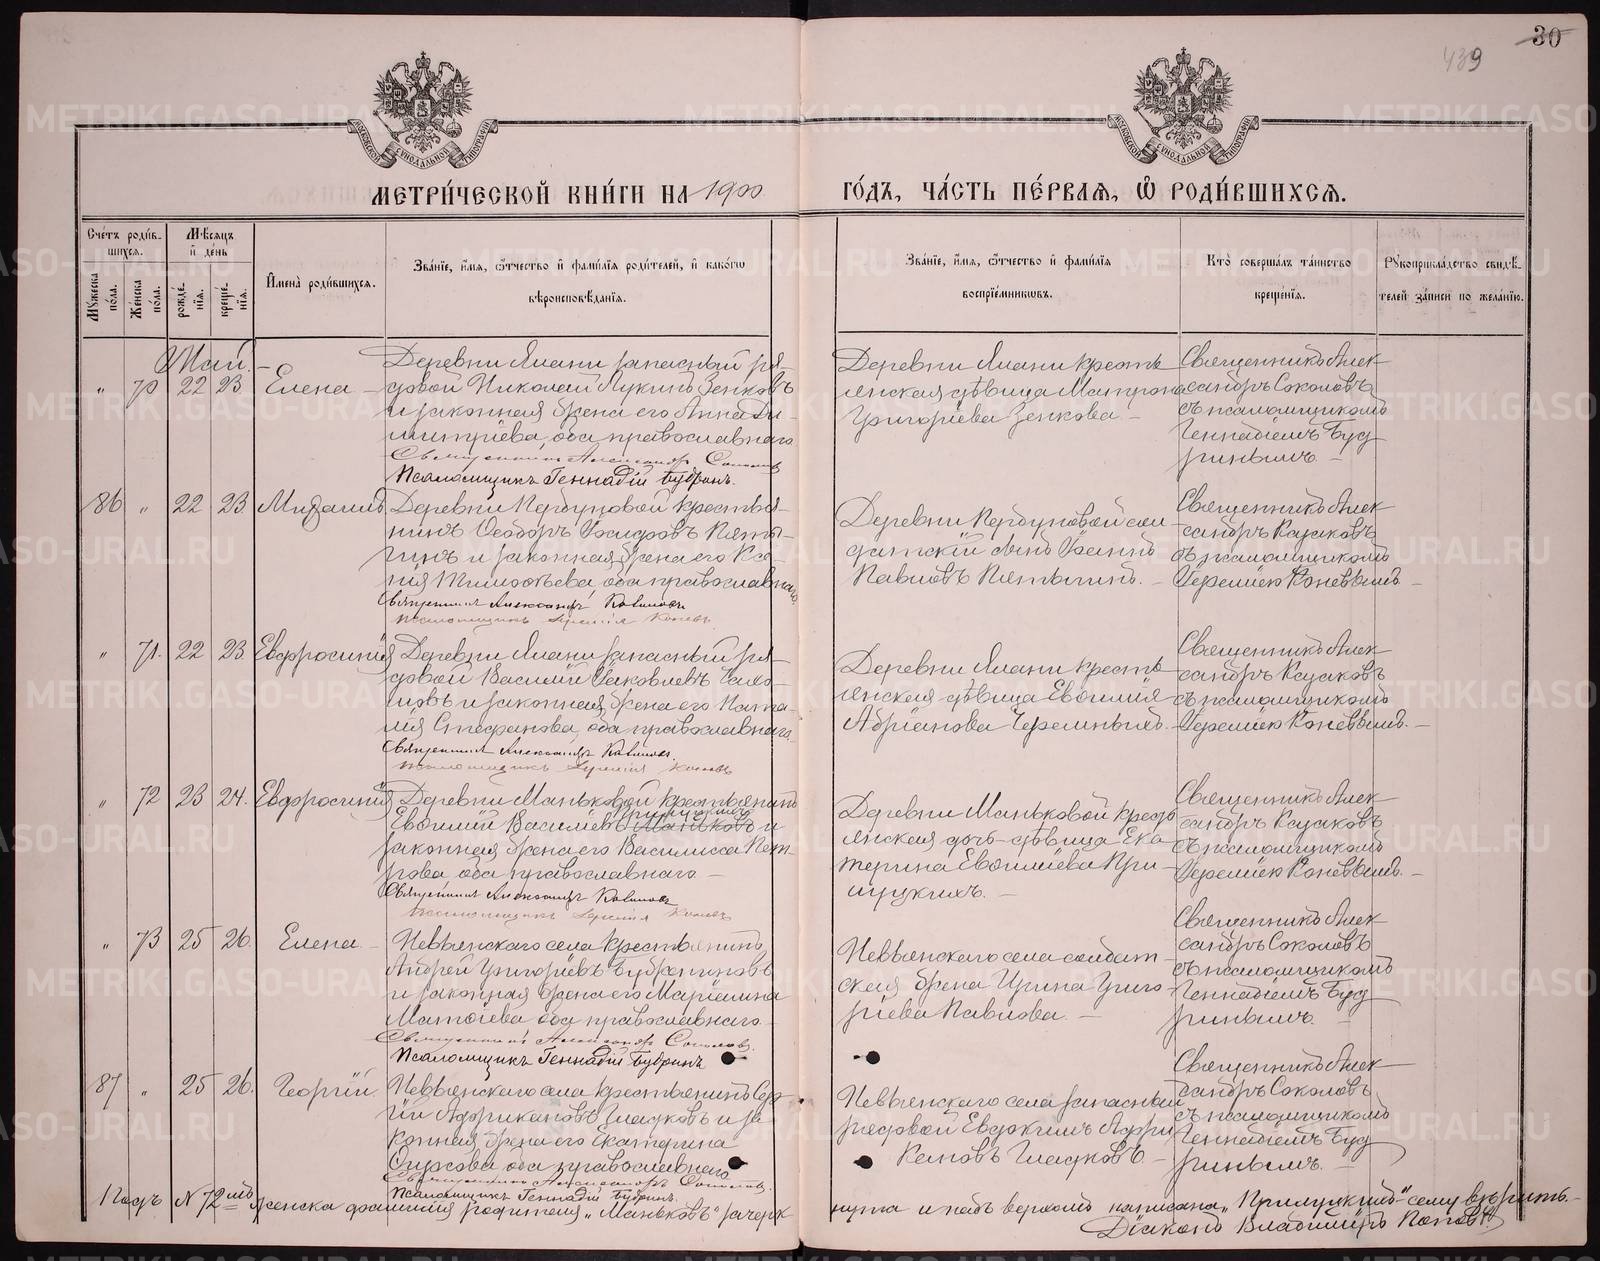 30
439
МЕТРИ́ЧЕСКОЙ КНИ́ГИ НА 1900
ГО́ДЪ, ЧА́СТЬ ПЕ́РВАЯ, Ѽ РОДИ́ВШИХСЯ.
Сче́тъ роди́в-
шихся.
Мѣ́сяцъ
и҆ де́нь
Мꙋ́жеска
по́ла.
Же́нска
по́ла.
рожде́-
нїѧ.
креще́-
нїѧ.
И҆мена̀ роди́вшихся.
Зва́нїе, и҆́мѧ, ѻ҆́тчество и҆ фами́лїѧ роди́телей, и҆ како́гѡ
вѣроисповѣ́данїѧ.
Зва́нїе, и҆́мѧ, ѻ҆́тчество и҆ фами́лїѧ
воспрїе́мникѡвъ.
Кто̀ соверша́лъ та́инство
креще́нїѧ.
Рꙋкоприкла́дство свидѣ́-
телей за́писи по жела́нїю.
Май.
„ 70 22 23 Елена
Деревни Ялани запасный ря-
довой Николай Лукинъ Зенковъ
и законная жена его Анна Ди-
митріева, оба православнаго
Священникъ Александръ Соколовъ
Псаломщикъ Геннадій Будринъ.
Деревни Ялани кресть
янская дѣвица Матрона
Григоріева Зенкова —
Священникъ Алек-
сандръ Соколовъ
съ псаломщикомъ
Геннадіемъ Буд
ринымъ. —
86 „ 22 23 Михаилъ
нинъ Ѳеодоръ
и законная жена его Ксе-
нія Тимоѳѣева, оба православнаго.
Священникъ Александръ
псаломщикъ Іеремія Коневъ.
сол
датскій сынъ
Павловъ
Священникъ Алек-
сандръ
съ псаломщикомъ
Іереміею Коневымъ. —
„ 71. 22 23 Евфросинія
Деревни Ялани запасный ря-
довой Василій Яковлевъ
и законная жена его Ната-
лія Стефанова, оба православнаго.
Священникъ Александръ
псаломщикъ Іеремія Коневъ
Деревни Ялани кресть
янская дѣвица Евѳимія
Адріанова Черемныхъ. —
Священникъ Алек-
сандръ
съ псаломщикомъ
Іереміею Коневымъ. —
„ 72 23 24. Евфросинія
Деревни Маньковой крестьянинъ
Евѳимій Васильевъ Маньковъ и
законная жена его Василисса Пет-
рова, оба православнаго —
Священникъ Александръ
псаломщикъ Іеремія Коневъ
Деревни Маньковой кресть
янская дочь-дѣвица Ека-
терина Евѳиміева При-
луцкихъ. —
Священникъ Алек-
сандръ
съ псаломщикомъ
Іереміею Коневымъ. —
„ 73 25 26. Елена —
Невьянскаго села крестьянинъ
Андрей Григорьевъ
и законная жена его Маріанна
Матѳіева, оба православнаго. —
Священникъ Александръ Соколовъ.
Псаломщикъ Геннадій Будринъ
Невьянскаго села солдат-
ская жена Ирина Григо-
ріева Павлова. —
Священникъ Алек-
сандръ Соколовъ
съ псаломщикомъ
Геннадіемъ Буд
ринымъ. —
87 „ 25 26. Георгій.
Невьянскаго села крестьянинъ Сер-
гій Африкановъ Гладковъ и за
конная жена его Екатерина
оба православнаго
Священникъ Александръ Соколовъ.
Псаломщикъ Геннадій Будринъ.
Невьянскаго села запасный
рядовой Евдокимъ Афри
кановъ Гладковъ. —
Священникъ Алек-
сандръ Соколовъ
съ псаломщикомъ
Геннадіемъ Буд
ринымъ. —
Подъ № 72мъ женска фамилія родителя „Маньковъ" зачерк
нута и надъ верхомъ написана „Прилуцкихъ" сему вѣрить. —
Діаконъ Владиміръ Поповъ
METRIKI.GASO-URAL.RU